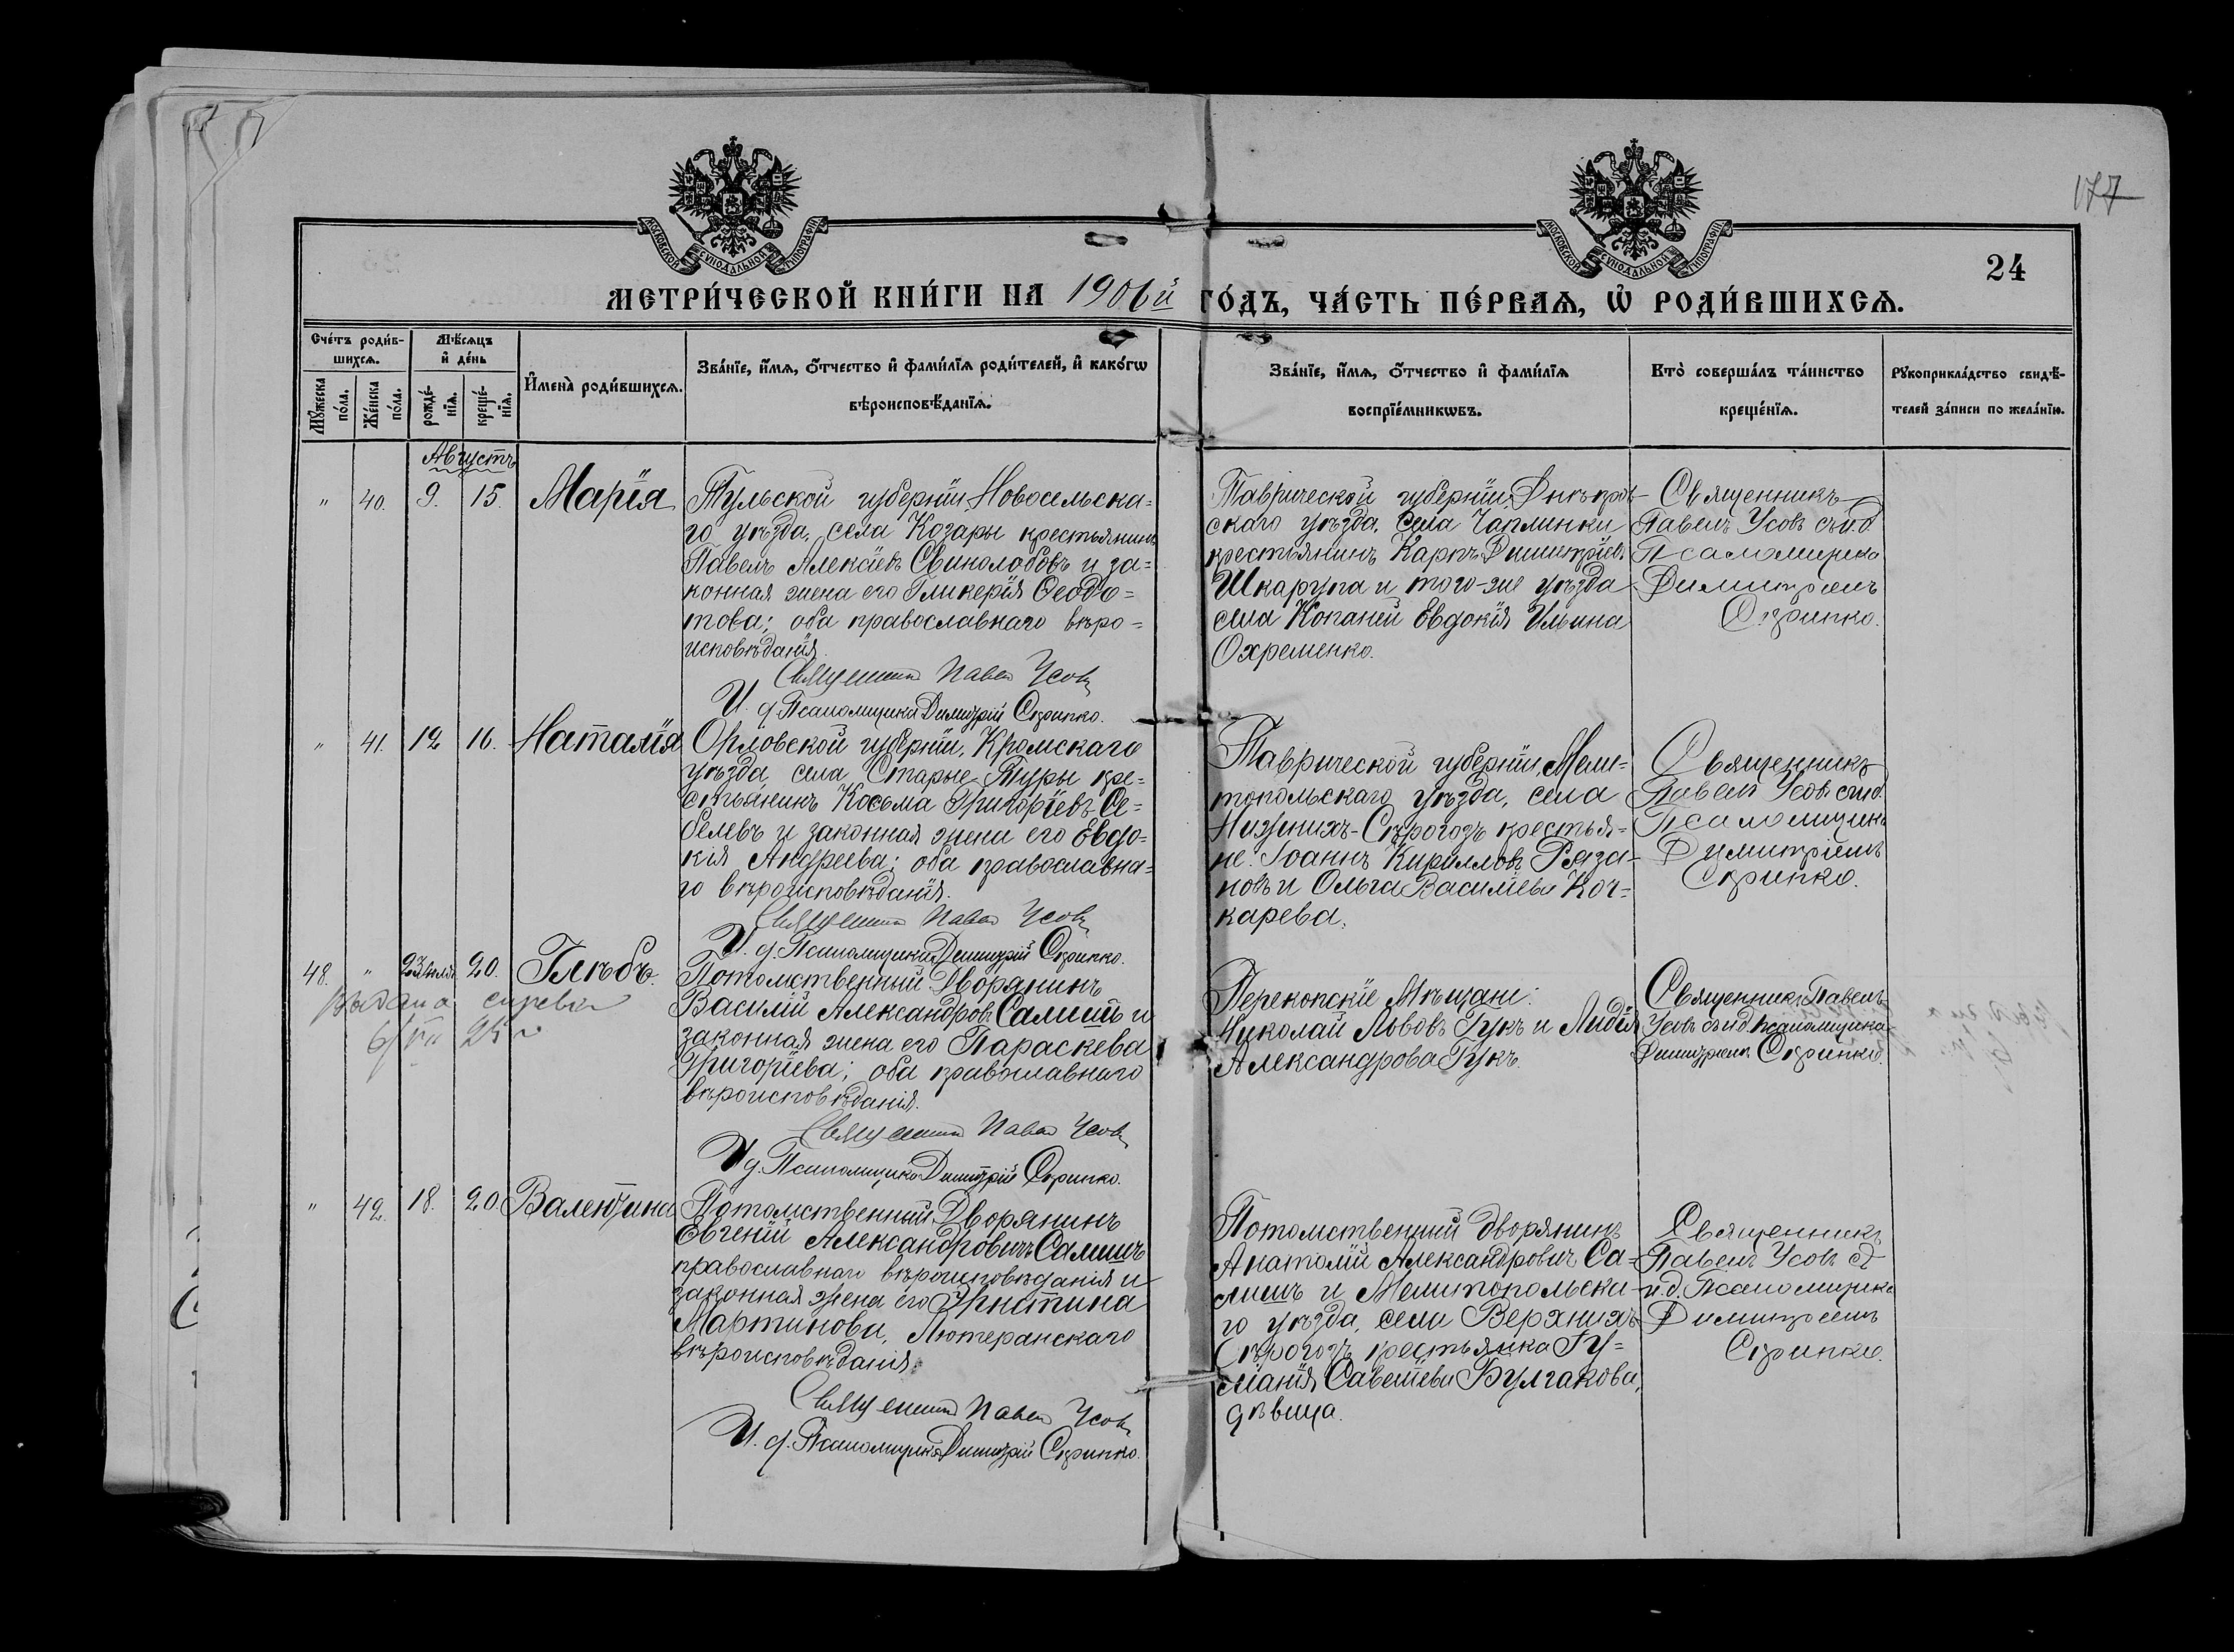 177
МОСКОВСКОЙ СУНОДАЛЬНОЙ ТИПОГРАФІИ
МОСКОВСКОЙ СУНОДАЛЬНОЙ ТИПОГРАФІИ
24
МЕТРИ́ЧЕСКОЙ КНИ́ГИ НА 1906й ГО́ДЪ, ЧА́СТЬ ПЕ́РВАѦ, Ѡ РОДИ́ВШИХСѦ.
Сче́тъ роди́в-
шихсѧ.
Мѣ́сѧцъ
и҆ де́нь
Мꙋ́жеска
по́ла.
Же́нска
по́ла.
рожде́-
нїѧ.
креще́-
нїѧ.
И҆мена̀ роди́вшихсѧ.
Зва́нїе, и҆́мѧ, ѻ҆́тчество и҆ фами́лїѧ роди́телей, и҆ како́гѡ
вѣроисповѣ́данїѧ.
Зва́нїе, и҆́мѧ, ѻ҆́тчество и҆ фами́лїѧ
воспрїе́мникѡвъ.
Кто̀ соверша́лъ та́инство
креще́нїѧ.
Рꙋкоприкла́дство свидѣ́-
телей за́писи по жела́нїю.
Августъ
" 40. 9. 15. Марія
Тульской губерніи Новосельска=
го уѣзда, села Козары крестьянинъ
Павелъ Алексіевъ Свинолобовъ и за=
конная жена его Гликерія Ѳеодо=
това; оба православнаго вѣро=
исповѣданія.
Священникъ Павелъ Усовъ
И. д. Псаломщика Димитрій Скрипко.
Таврической губерніи, Днѣпров-
скаго уѣзда, села Чаплинки
крестьянинъ Карпъ Димитріевъ
Шкарупа и того-же уѣзда
села Копаней Евдокія Ильина
Охременко.
Священникъ
Павелъ Усовъ съ и.д.
Псаломщика
Димитріемъ
Скрипко.
" 41. 12 16. Наталія
Орловской губерніи, Кромскаго
уѣзда, села Старые Туры кре=
стьянинъ Косьма Григоріевъ Се=
белевъ и законная жена его Евдо=
кія Андреева; оба православна=
го вѣроисповѣданія.
Священникъ Павелъ Усовъ
И. д. Псаломщика Димитрій Скрипко.
Таврической губерніи, Мели-
топольскаго уѣзда, села
Нижнихъ-Сѣрогозъ крестья=
не: Іоаннъ Кирилловъ Ряза-
новъ и Ольга Васильева Коч=
карева.
Священникъ
Павелъ Усовъ съ и.д.
Псаломщика
Димитріемъ
Скрипко.
48. " 23 Іюля 20. Глѣбъ.
Выдана справка
6/VII 25 г
Потомственный Дворянинъ
Василій Александровъ Салишъ и
законная жена его Параскева
Григоріева; оба православнаго
вѣроисповѣданія.
Священникъ Павелъ Усовъ
И д. Псаломщика Димитрій Скрипко.
Перекопскіе Мѣщане:
Николай Львовъ Гукъ и Лидія
Александрова Гукъ.
Священникъ Павелъ
Усовъ съ и.д. псаломщика
Димитріемъ Скрипко.
" 42. 18. 20. Валентина
Потомственный Дворянинъ
Евгеній Александровичъ Салишъ
православнаго вѣроисповѣданія и
законная жена его Эрнстина
Мартинова, Лютеранскаго
вѣроисповѣданія.
Священникъ Павелъ Усовъ
И. д. Псаломщика Димитрій Скрипко.
Потомственный дворянинъ
Анатолій Александровичъ Са-
лишъ и Мелитопольска-
го уѣзда, села Верхнихъ
Сѣрогозъ крестьянка Іу=
ліанія Савельева Булгакова,
дѣвица.
Священникъ
Павелъ Усовъ съ
и.д. Псаломщика
Димитріемъ
Скрипко.